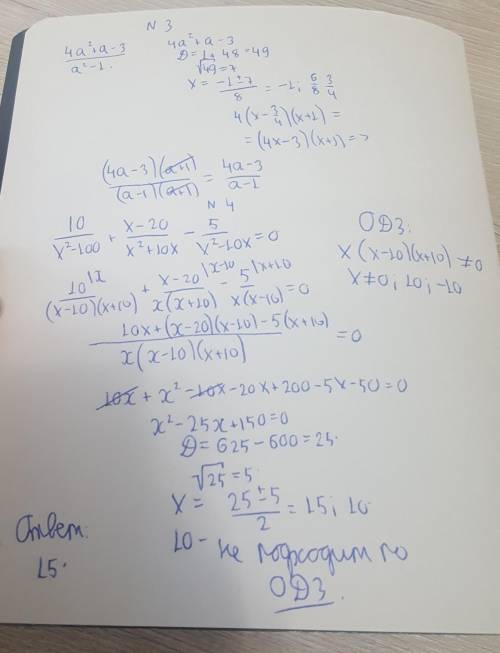 N 3
4a²+a-3 / a²-1.
4a²+a-3
D=1+48=49
√49=7
x = (-1±7)/8 = -1; 6/8 3/4
4(x-3/4)(x+1)=
=(4x-3)(x+1)=>
(4a-3)(a+1) / (a-1)(a+1) = 4a-3 / a-1
N 4
10 / x²-100 + x-20 / x²+10x - 5 / x²-10x =0
ОДЗ:
x(x-10)(x+10)≠0
x≠0; 10; -10
10|x / (x-10)(x+10) + x-20|x-10 / x(x+10) - 5|x+10 / x(x-10) =0
10x+(x-20)(x-10)-5(x+10) / x(x-10)(x+10) =0
10x+x²-10x-20x+200-5x-50=0
x²-25x+150=0
D=625-600=25.
√25=5.
x = (25±5)/2 = 15; 10
Ответ:
15.
10- не подходит по
ОДЗ.